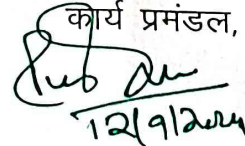 कार्य प्रमंडल,
12/9/2024